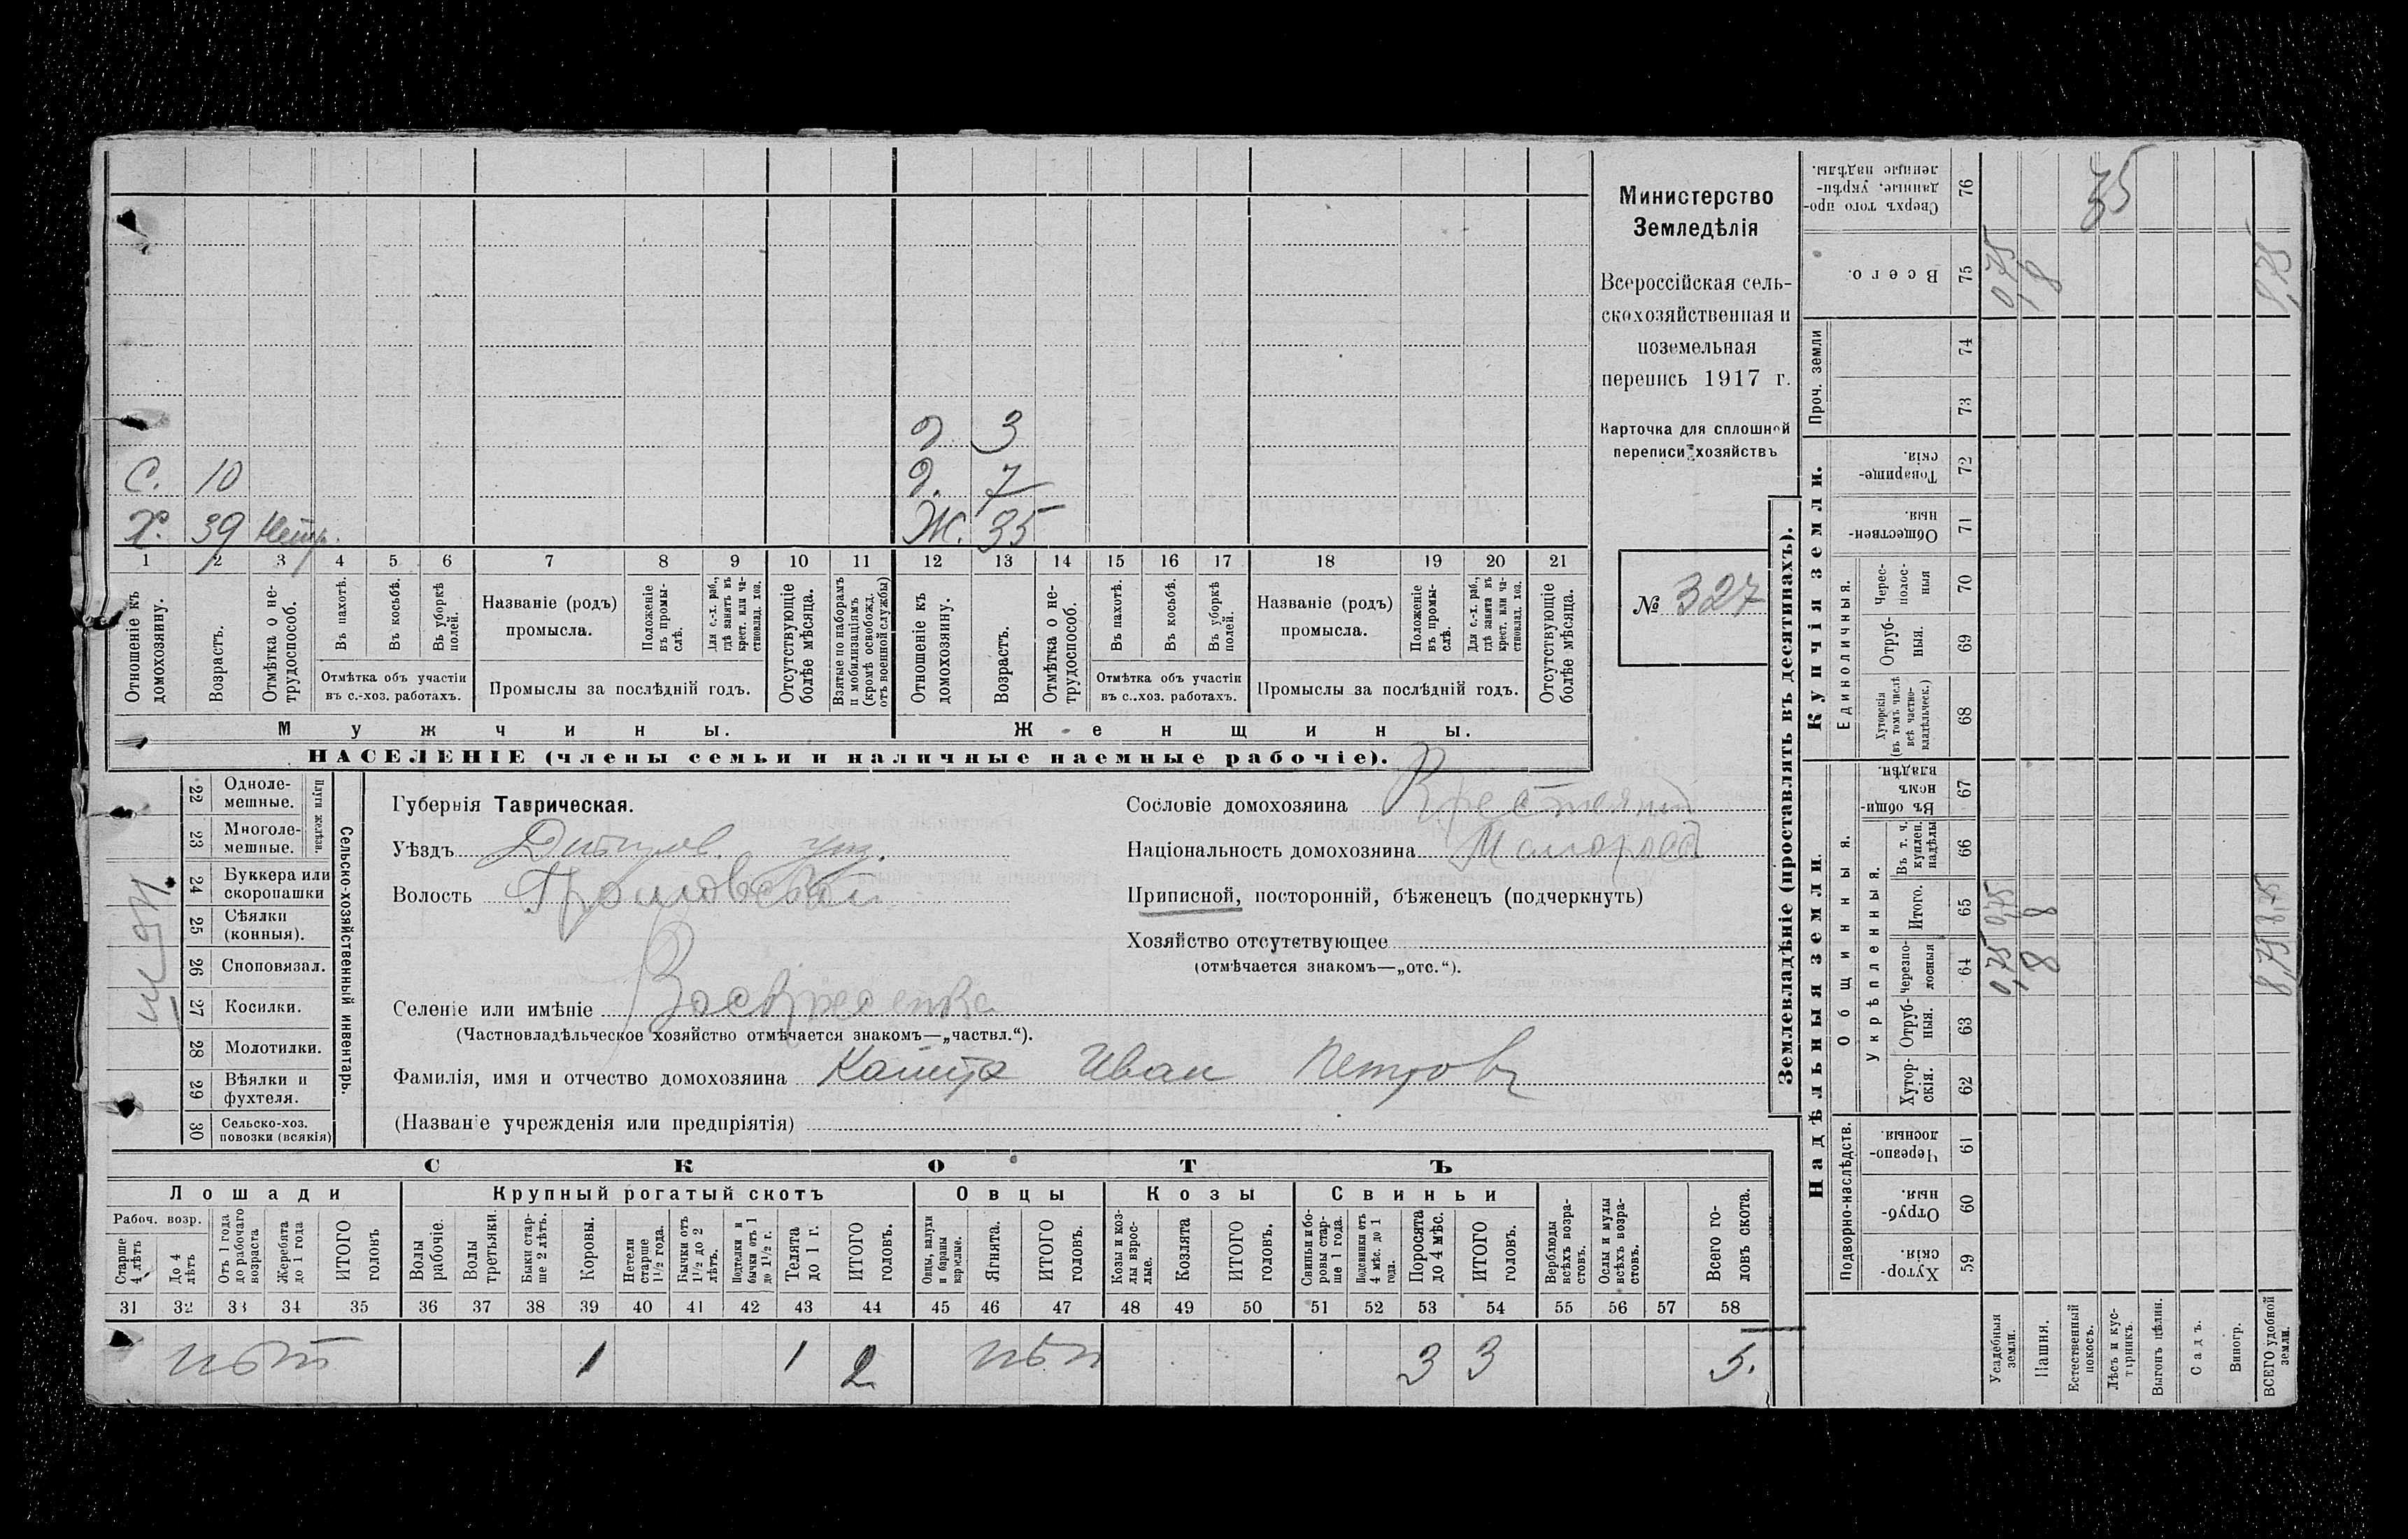 Министерство
Земледѣлія
Всероссійская сель-
скохозяйственная и
поземельная
перепись 1917 г.
Карточка для сплошной
переписи хозяйствъ
№ 327
д. 3
С. 10 д. 7
Х. 39 Ж. 35
1 2 3 4 5 6 7 8 9 10 11 12 13 14 15 16 17 18 19 20 21
Отношеніе къ домохозяину.
Возрастъ.
Отмѣтка о не-трудоспособ.
Въ пахотѣ.
Въ косьбѣ.
Въ уборкѣ полей.
Отмѣтка объ участіи
въ с.-хоз. работахъ.
Названіе (родъ)
промысла.
Положеніе въ промы-слѣ.
Для с.-х. раб., гдѣ занятъ въ крест. или ча-стновлад. хоз.
Промыслы за послѣдній годъ.
Отсутствующіе болѣе мѣсяца.
Взятые по наборамъ и мобилизаціямъ (кромѣ освобожд. отъ военной службы)
Отношеніе къ домохозяину.
Возрастъ.
Отмѣтка о не-трудоспособ.
Въ пахотѣ.
Въ косьбѣ.
Въ уборкѣ полей.
Отмѣтка объ участіи
въ с.-хоз. работахъ.
Названіе (родъ)
промысла.
Положеніе въ промы-слѣ.
Для с.-х. раб., гдѣ занята въ крест. или ча-стновлад. хоз.
Промыслы за послѣдній годъ.
Отсутствующіе болѣе мѣсяца.
Мужчины. Женщины.
НАСЕЛЕНІЕ (члены семьи и наличные наемные рабочіе).
Сельско-хозяйственный инвентарь.
Плуги желѣзн.
22 Одноле-мешные.
23 Многоле-мешные.
24 Буккера или скоропашки
25 Сѣялки (конныя).
26 Сноповязал.
27 Косилки.
28 Молотилки.
29 Вѣялки и фухтеля.
30 Сельско-хоз. повозки (всякія)
Губернія Таврическая.
Уѣздъ
Волость
Селеніе или имѣніе Воскресенка
(Частновладѣльческое хозяйство отмѣчается знакомъ—„частвл.“).
Фамилія, имя и отчество домохозяина Капуста Иван Петровъ
(Названіе учрежденія или предпріятія)
Сословіе домохозяина Крестьянин
Національность домохозяина Малоросс
Приписной, посторонній, бѣженецъ (подчеркнуть)
Хозяйство отсутствующее
(отмѣчается знакомъ—„отс.“).
СКОТЪ
Лошади Крупный рогатый скотъ Овцы Козы Свиньи
Рабоч. возр.
Старше 4 лѣтъ
До 4 лѣтъ
Отъ 1 года до рабочаго возраста
Жеребята до 1 года
ИТОГО головъ
Волы рабочіе.
Волы третьяки.
Быки стар-ше 2 лѣтъ.
Коровы.
Нетели старше 1½ года.
Бычки отъ 1½ до 2 лѣтъ.
Подтелки и бычки отъ 1 до 1½ г.
Телята до 1 г.
ИТОГО головъ.
Овцы, валухи и бараны взрослые.
Ягнята.
ИТОГО головъ.
Козы и коз-лы взрос-лые.
Козлята
ИТОГО головъ.
Свиньи и бо-ровы стар-ше 1 года.
Подсвинки отъ 4 мѣс. до 1 года.
Поросята до 4 мѣс.
ИТОГО головъ.
Верблюды всѣхъ возра-стовъ.
Ослы и мулы всѣхъ возра-стовъ.
Всего го-ловъ скота.
31 32 33 34 35 36 37 38 39 40 41 42 43 44 45 46 47 48 49 50 51 52 53 54 55 56 57 58
нѣт 1 1 2 нѣт 3 3 5.
Землевладѣніе (проставлять въ десятинахъ).
Купчія земли.
Надѣльныя земли.
Сверхъ того про-данные, укрѣп-ленные надѣлы. 76 35
Всего. 75 0,75 8 8,75
Проч. земли 74 73
Товарище-скія. 72
Обществен-ныя. 71
Единоличныя.
Черес-полос-ныя 70
Отруб-ныя. 69
Хуторскія (въ томъ числѣ всѣ частно-владѣльческ.) 68
Общинныя.
Въ общин-номъ владѣн. 67
Укрѣпленныя.
Въ т. ч. куплен. надѣлы 66
Итого. 65 0,75 8 8,75
Черезпо-лосныя 64 0,75 8 8,75
Отруб-ныя. 63
Хутор-скія. 62
Подворно-наслѣдств.
Черезпо-лосныя. 61
Отруб-ныя. 60
Хутор-скія. 59
Усадебныя земли.
Пашня.
Естественный покосъ.
Лѣсъ и кус-тарникъ.
Выгонъ цѣлин.
Садъ.
Виногр.
ВСЕГО удобной земли.